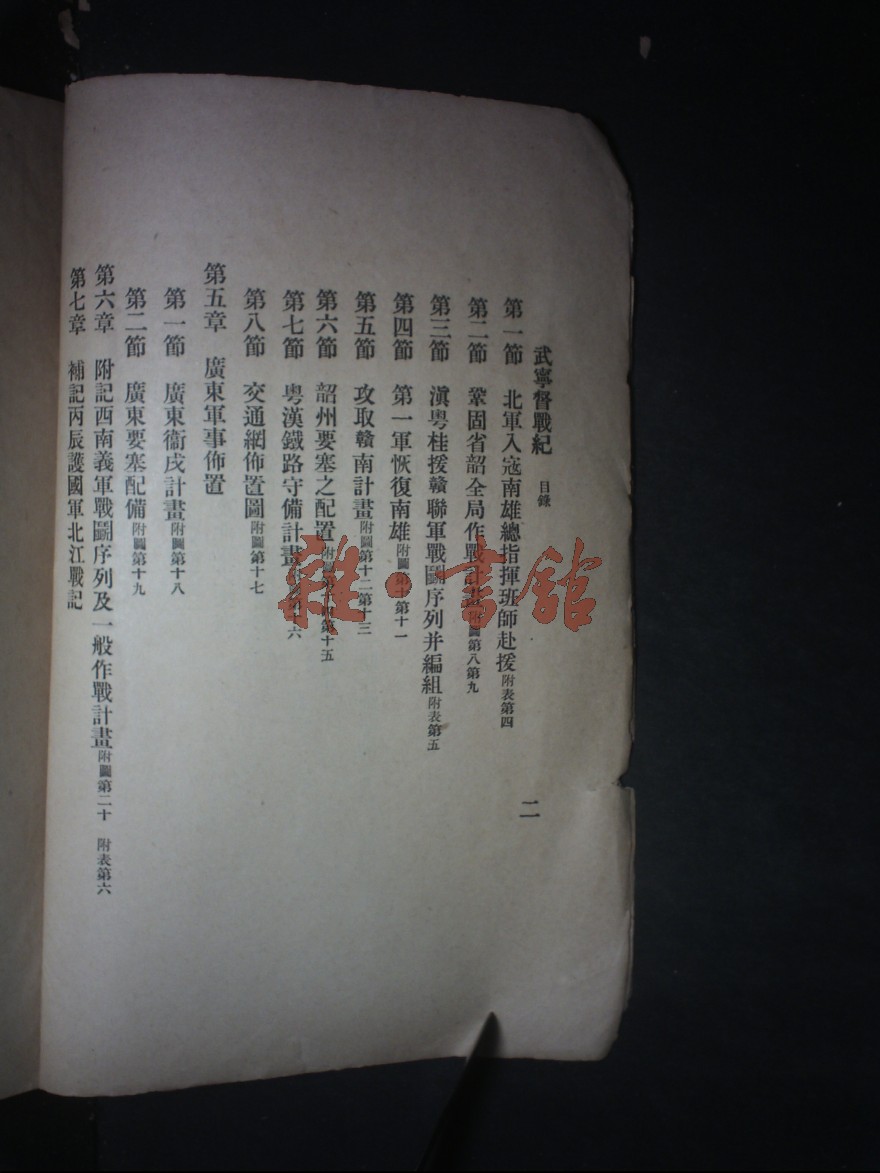 武寧督戰紀 目錄 二
第一節 北軍入寇南雄總指揮班師赴援 附表第四
第二節 鞏固省韶全局作戰計畫 附圖第八第九
第三節 滇粵桂援贛聯軍戰鬭序列并編組 附表第五
第四節 第一軍恢復南雄 附圖第十第十一
第五節 攻取贛南計畫 附圖第十二第十三
第六節 韶州要塞之配置 第十五
第七節 粵漢鐵路守備計畫 十六
第八節 交通網佈置圖 附圖第十七
第五章 廣東軍事佈置
第一節 廣東衞戍計畫 附圖第十八
第二節 廣東要塞配備 附圖第十九
第六章 附記西南義軍戰鬭序列及一般作戰計畫 附圖第二十 附表第六
第七章 補記丙辰護國軍北江戰記
雜·書館